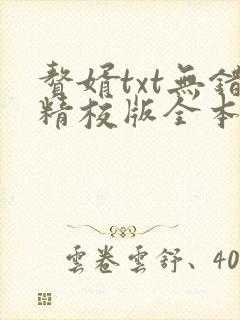 贅婿txt無錯
精校版全本
雲卷雲舒、40